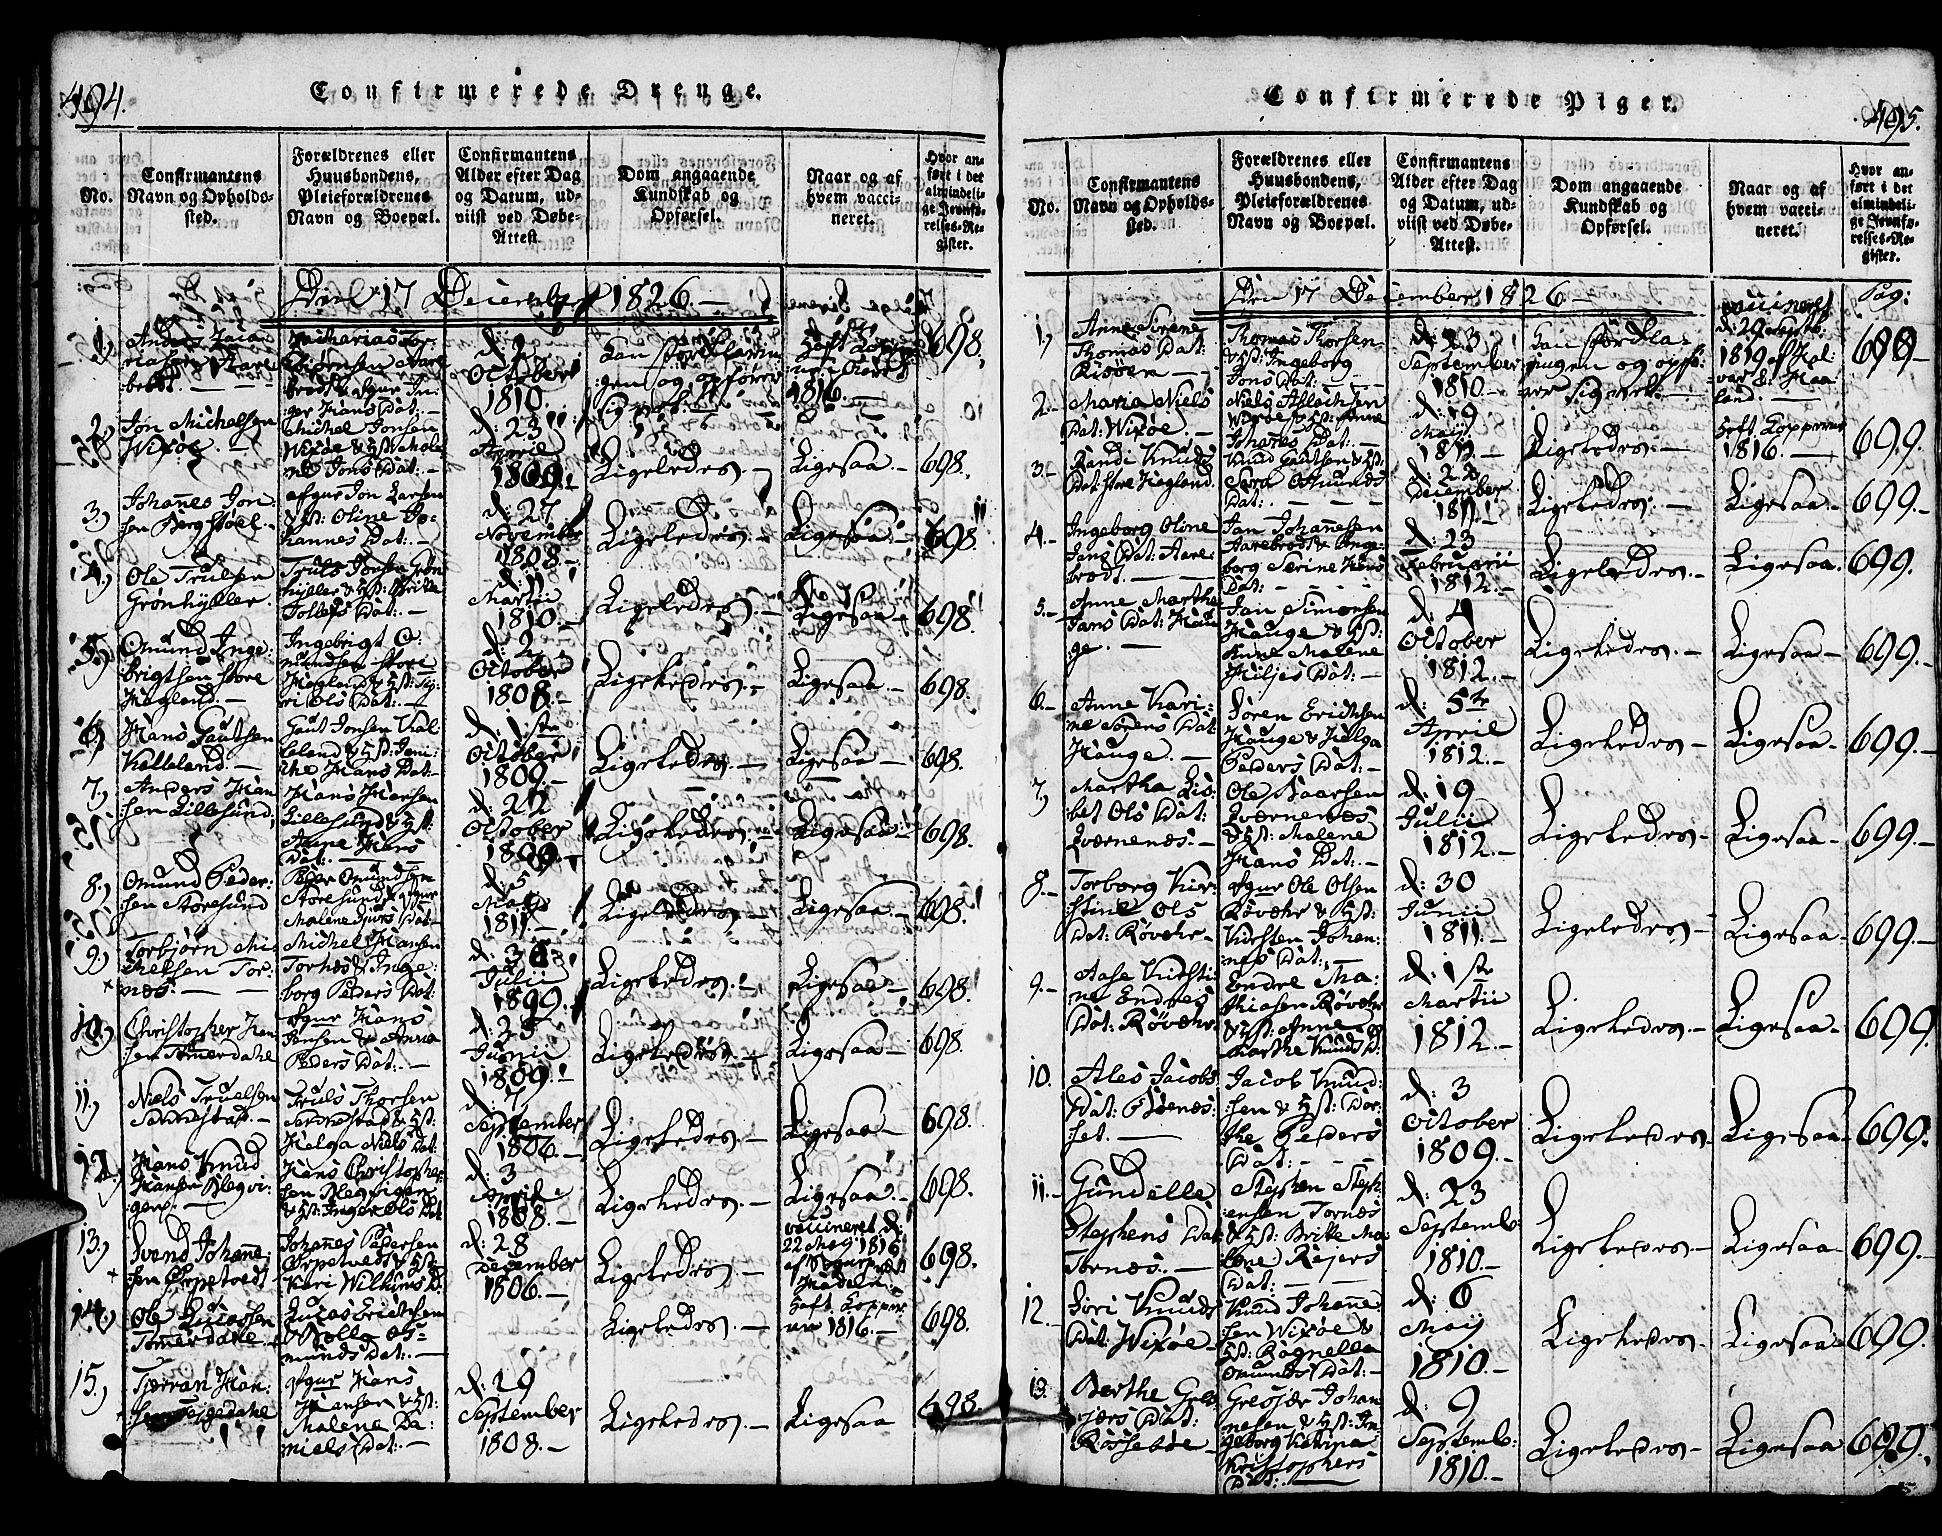 494.
Confirmerede Drenge.
No.
Confirmantens
Navn og Opholds-
sted.
Forældrenes eller
Huusbondens,
Pleieforældrenes
Navn og Boepæl.
Confirmantens
Alder efter Dag
og Datum, ud-
viist ved Døbe-
Attest.
Dom angaaende
Kundskab og
Opførsel.
Naar og af
hvem vacci-
neret.
Hvor an-
ført i det
almindeli-
ge Jevnfø-
relses-Re-
gister.
Den 17 December 1826.-
1.)
Anders Zacha-
riasen Aare
brodt.
Zacharias Tor-
biørnsen Aare
brodt &
ger Hans Dat:
d: 2
October
1810.
Han
gen og opfører
sig vel.
Haft Kopper-
ne
1816.-
698.
2.)
Jon Michelsen
Wixøe.-
Michel Jonsen
Wixøe & Hst: Male
ne Jons Dat:-
d: 23
April
1809.-
Ligeledes.-
Ligesaa.-
698.
3.)
Johannes Jon
sen Bergstøel.-
afgur Jon Larsen
& Hst: Oline Jo-
hannes Dat:-
d: 27
November
1808.-
Ligeledes.-
Ligesaa.-
698.
4.)
Ole Trulsen
Grønhyller.
Truls Jonsen Grøn
hyller & Hst: Britte
Tollefs Dat:-
d: 11
Martii
1810.-
Ligeledes.-
Ligesaa.-
698.
5.)
Omund Inge:
brigtsen store
Hegland.-
Ingebrigt O:
mundsen store
Hegland & Hst: Si-
ri Ols Dat:-
d: 2
October
1808.-
Ligeledes.-
Ligesaa.-
698.
6.)
Hans Gautsen
Kalleland.-
Gaut Jonsen Kal
leland & Hst:
the Hans Dat:-
d: 1ste
October
1809.-
Ligeledes.-
Ligesaa.-
698.
7.)
Anders Han
sen Lillesund.
Hans Hansen
Lillesund & Hst:
Anne Hans
Dat:
d: 22
October
1809.-
Ligeledes.-
Ligesaa.-
698.
8.)
Omund Peder:
sen Storesund
Peder Omundsen
Storesund & Hst:
Malene Dat:-
d: 5
Maji
1811.-
Ligeledes.-
Ligesaa.-
698.
9.)
Torbjørn Mi
chelsen Tor-
næs.-
Michel Hansen
Tornæs & Inge:
borg Peders Dat:
d: 30
Julii
1809.
Ligeledes.-
Ligesaa.-
698.
10.)
Christopher Han
sen Tømerdahl
afgur Hans
Jonsen & Anna
Peders Dat:-
d: 25
Junii
1809.
Ligeledes.-
Ligesaa.-
698.
11.)
Niels Truelsen
Sørnestad.-
Truls Thorsen
Sørnestad & Hst:
Helga Niels Dat:
d: 7
September
1806.-
Ligeledes.-
Ligesaa.-
698.
12.)
Hans Knud
Hansen Blegvi-
gen.-
Hans Christopher
sen Blegvigen
& Hst: Inger Ols Dat
d: 3
April
1808.-
Ligeledes.-
Ligesaa.-
698.
13.)
Svend Johanne:
sen Ørpetvedt.
Johannes Pedersen
Ørpetvedt & Hst:
Kari Willums D:
d: 28
December
1806.-
Ligeledes.-
vaccineret d:
22 Maij 1816
af
698.
14.)
Ole Lucassen
Tømerdahl.
Lucas Erichsen
& Bolla Os-
munds Dat:.-
Ligeledes.-
Haft Kopper:
ne 1816.-
698.
15.)
Tjerran Han:
sen
afgur Hans
Hansen & Hst:
Malene Da:
niels Dat:-
d: 29
September
1808.-
Ligeledes.-
Ligesaa
698.
Confirmerede Piger.
495.
No.
Confirmantens
Navn og Opholds-
sted.
Forældrenes eller
Huusbondens,
Pleieforældrenes
Navn og Boepæl.
Confirmantens
Alder efter Dag
og Datum, ud-
viist ved Døbe-
Attest.
Dom angaaende
Kundskab og
Opførsel.
Naar og af
hvem vacci-
neret.
Hvor an-
ført i det
almindeli-
ge Jevnfø-
relses-Re-
gister.
Den 17 December 1826.-
Pag:
1.)
Anne Serene
Thomas Dat:
Risøen.-
Thomas Thorsen
& Hst: Ingeborg
Jons Dat:
d: 23
September
1810.-
Han forkla-
ringen og opfø-
rer sig vel.-
vaccineret
d: 29 Septb:
1819 af Hal-
vor S: Haa
land.-
699
2.-
Maria Niels
Dat: Wixøe.-
Niels Aslachsen
Wixøe & Hst: Anne
Johannes Dat:-
d: 19
Maij
1812.-
Ligeledes.-
Haft Kopperne
1816.-
699.
3.-
Randi Knuds
Dat: store Hegland.
Knud Gautsen & Hst:
Sara Osmunds
Dat:-
d: 22
December
1811.
Ligeledes.-
Ligesaa.-
699.-
4.-
Ingeborg Oline
Jans Dat: Aare:
brodt.-
Jan Johannesen
Aarebrodt & Inge:
borg Serine Hans
Dat:-
d: 23
Februarii
1812.-
Ligeledes.-
Ligesaa.
699.
5.-
Anne Marthe
Jans Dat: Hau
ge.-
Jan Simonsen
Hauge & Hst:
Anne Malene
Kiljes Dat:-
d: 4
October
1812.-
Ligeledes.-
Ligesaa.-
699.-
6.-
Anne Kari-
ne Sørens Dat
Hauge.-
Søren Erichsen
Hauge & Helga
Peders Dat:-
d: 5te
April
1812.-
Ligeledes.-
Ligesaa.-
699.-
7.)
Martha Lis-
bet Ols Dat:
Qværnenæs.-
Ole Baarsen
Qværnenæs
& Hst: Malene
Hans Dat:-
d: 19
Julii
1812.-
Ligeledes.-
Ligesaa.-
699.-
8.-
Torborg Kir-
stine Ols
Dat: Røvæhr.-
afgur Ole Olsen
Røvæhr & Hst:
Kirsten Johan-
nes Dat:-
d: 30
Junii
1811.-
Ligeledes.-
Ligesaa.-
699.-
9.-
Aase Kirsti-
ne Endres
Dat: Røvæhr.
Endre Ma-
thiasen Røvæhr
& Hst: Anne
Marthe Knuds D:
d: 1ste
Martii
1812.-
Ligeledes.-
Ligesaa.-
699.
10.
Ales Jacobs
Dat:
Jacob Knud:
sen & Hst: Dor-
the Peders
Dat:-
d: 3
October
1809.-
Ligeledes.-
Ligesaa.-
699.
11.-
Gundille
Stephens Dat
Tornæs.-
Stephen Steph-
ensen Tornæs
& Hst: Britte Ma
lene Rejers
Dat:-
d: 23
Septemb:
1810.-
Ligeledes.-
Ligesaa.-
699.-
12.-
Siri Knuds
Dat: Wixøe.-
Knud Johanne
sen Wixøe &
Hst: Ragnella
Omunds Dat:-
d: 6
Maij
1810.-
Ligeledes.-
Ligesaa.-
699.
13.
Berthe Gre-
sjers Dat:
Røssebøe.-
Gresjer Johan
nesen & Hst: In-
geborg Katrina
Kristophers
Dat:-
d: 9
Septemb:
1810.-
Ligeledes.-
Ligesaa
699.